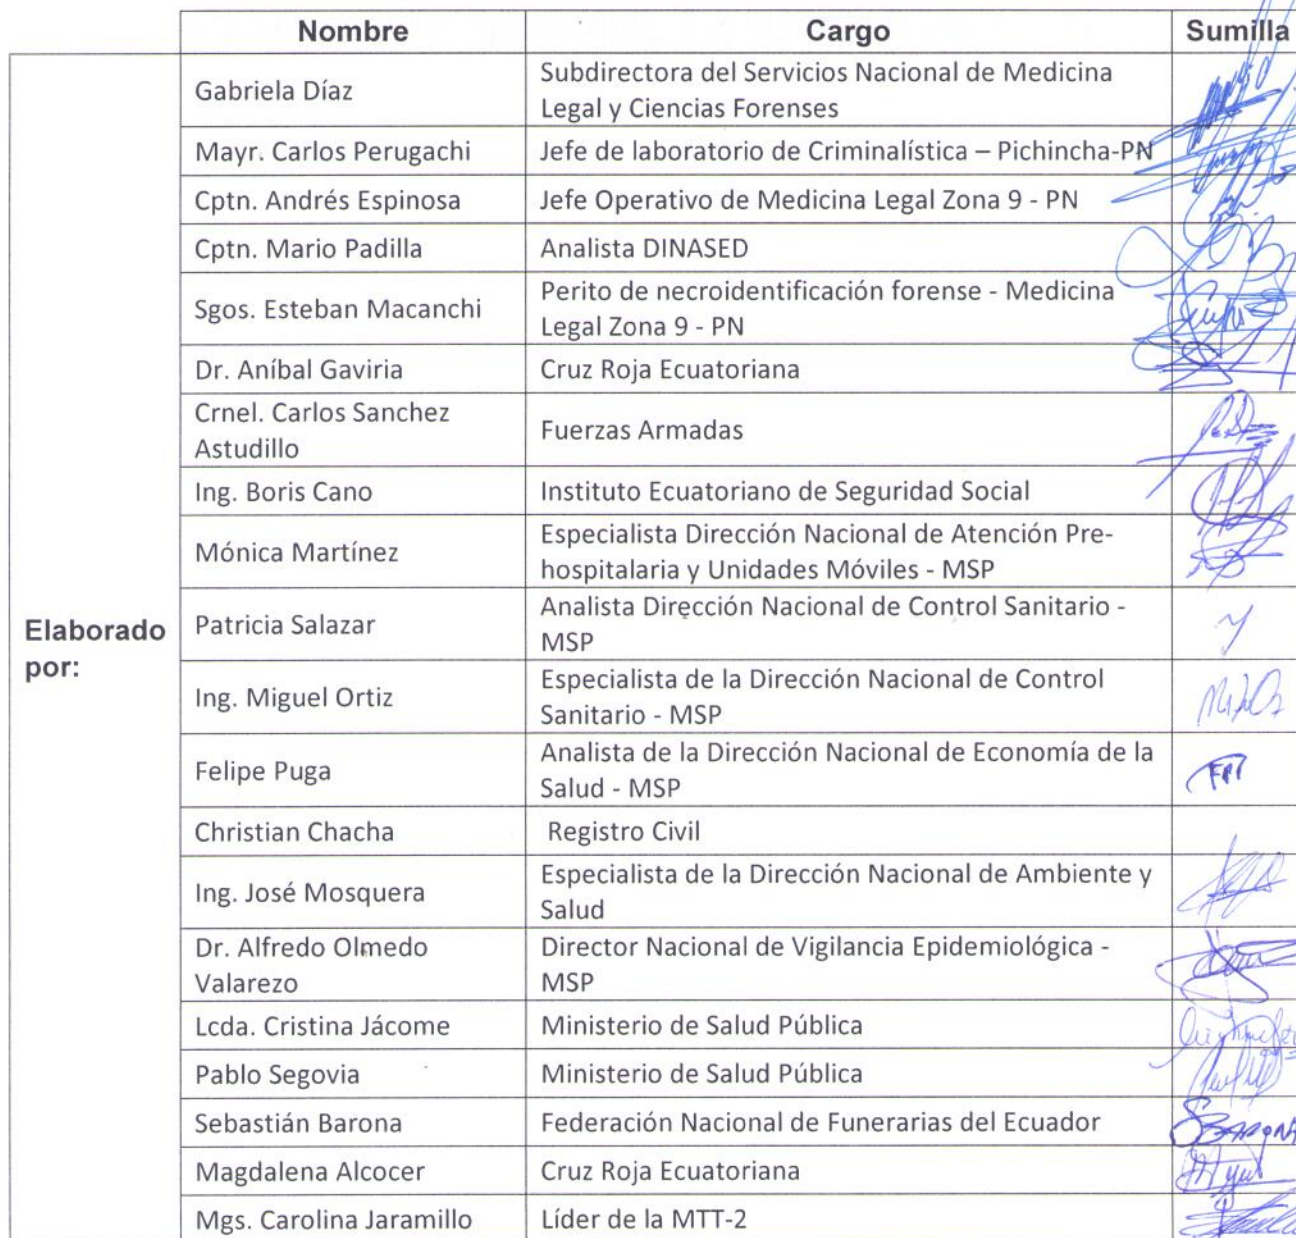 Nombre Cargo Sumilla
Gabriela Díaz
Subdirectora del Servicios Nacional de Medicina
Legal y Ciencias Forenses
Mayr. Carlos Perugachi
Jefe de laboratorio de Criminalística – Pichincha-PN
Cptn. Andrés Espinosa
Jefe Operativo de Medicina Legal Zona 9 - PN
Cptn. Mario Padilla
Analista DINASED
Sgos. Esteban Macanchi
Perito de necroidentificación forense - Medicina
Legal Zona 9 - PN
Dr. Aníbal Gaviria
Cruz Roja Ecuatoriana
Crnel. Carlos Sanchez
Astudillo
Fuerzas Armadas
Ing. Boris Cano
Instituto Ecuatoriano de Seguridad Social
Mónica Martínez
Especialista Dirección Nacional de Atención Pre-
hospitalaria y Unidades Móviles - MSP
Elaborado
por:
Patricia Salazar
Analista Dirección Nacional de Control Sanitario -
MSP
Ing. Miguel Ortiz
Especialista de la Dirección Nacional de Control
Sanitario - MSP
Felipe Puga
Analista de la Dirección Nacional de Economía de la
Salud - MSP
Christian Chacha
Registro Civil
Ing. José Mosquera
Especialista de la Dirección Nacional de Ambiente y
Salud
Dr. Alfredo Olmedo
Valarezo
Director Nacional de Vigilancia Epidemiológica -
MSP
Lcda. Cristina Jácome
Ministerio de Salud Pública
Pablo Segovia
Ministerio de Salud Pública
Sebastián Barona
Federación Nacional de Funerarias del Ecuador
SBARONA
Magdalena Alcocer
Cruz Roja Ecuatoriana
Mgs. Carolina Jaramillo
Líder de la MTT-2